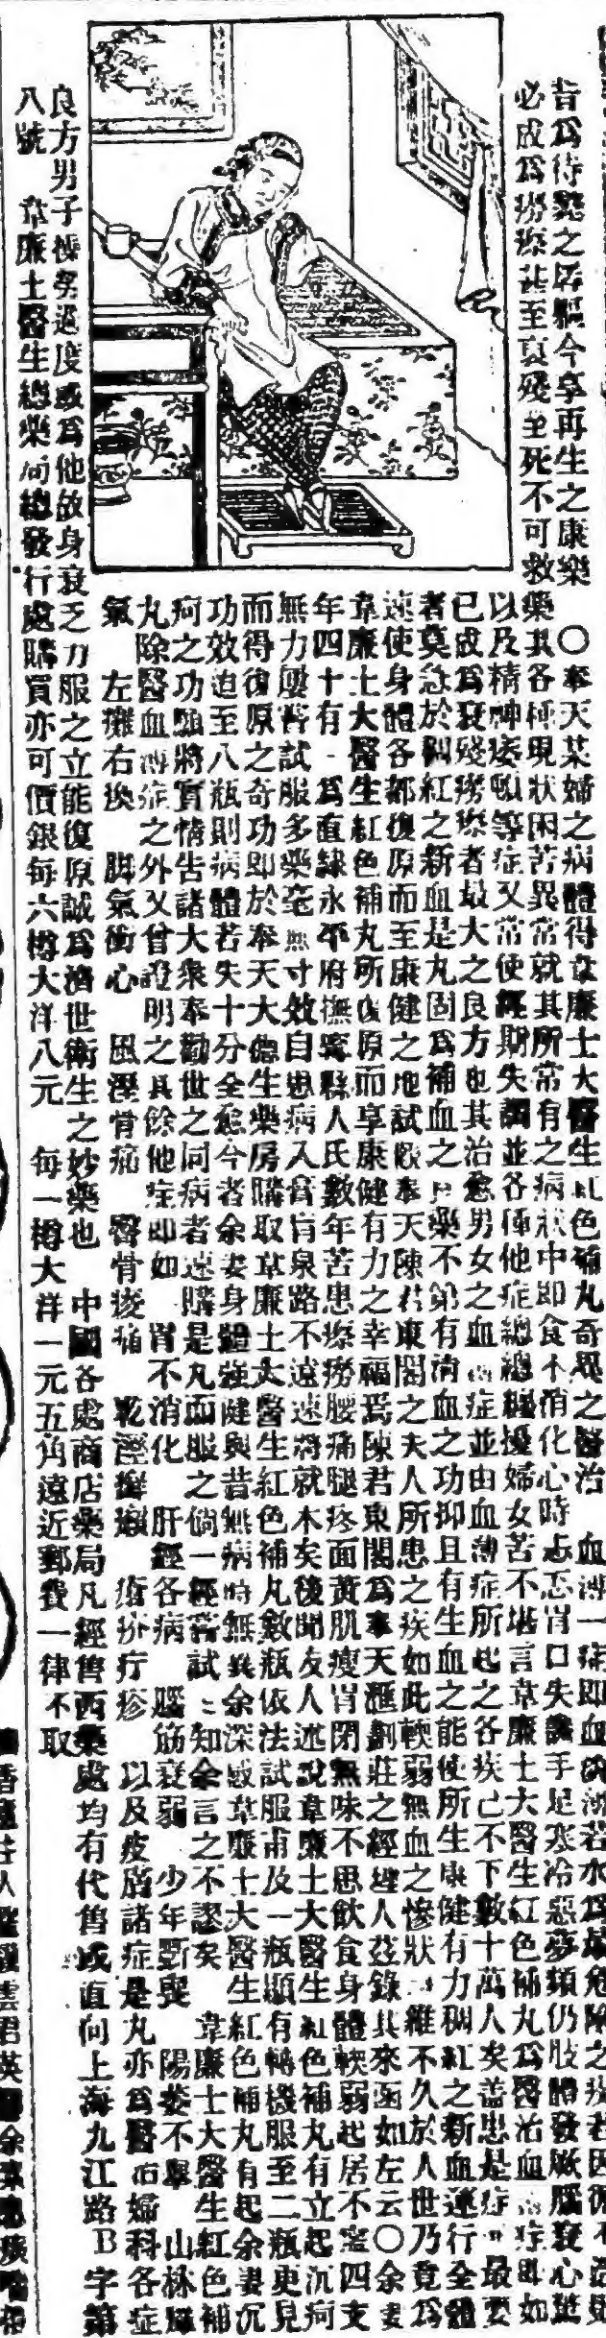 昔爲待斃之孱軀今享再生之康樂
必成爲癆瘵甚至衰殘至死不可救藥
○奉天某婦之病體得韋廉士大醫生紅色補丸奇異之醫治 血薄一症即血液薄若水爲最危險之疾若因循不速
其各種現狀困苦異常就其所常有之病狀中即食不消化心時忐忑胃口失調手足寒冷惡夢頻仍肢體發厥腦衰心
以及精神痿頓等症又常使經期失調並各種他症總總纏擾婦女苦不堪言韋廉士大醫生紅色補丸爲醫治血薄症即如
已成爲衰殘癆瘵者最大之良方也其治愈男女之血薄症並由血薄症所起之各疾已不下數十萬人矣蓋患是症最要
者莫急於稠紅之新血是丸固爲補血之藥不第有清血之功抑且有生血之能使所生康健有力稠紅之新血運行全體
速使身體各部復原而至康健之地試觀奉天陳君東閣之夫人所患之疾如此軟弱無血之慘狀維不久於人世乃竟爲
韋廉士大醫生紅色補丸所復原而享康健有力之幸福焉陳君東閣爲奉天滙劃莊之經理人茲錄其來函如左云○余妻
年四十有一爲直隸永平府撫寧縣人氏數年苦患瘵癆腰痛腿疼面黃肌瘦胃閉無味不思飲食身體軟弱起居不寧四支
無力屢嘗試服多藥毫無寸效自患病入膏肓泉路不遠速將就木矣後聞友人述說韋廉士大醫生紅色補丸有立起沉疴
而得復原之奇功即於奉天大德生藥房購取韋廉士大醫生紅色補丸數瓶依法試服甫及一瓶顯有轉機服至二瓶更見
功效迨至八瓶則病體若失十分全愈今者余妻身體強健與昔無病時無異余深感韋廉士大醫生紅色補丸有起余妻沉
疴之功願將實情告諸大衆奉勸世之同病者速購是丸而服之倘一經嘗試知余言之不謬矣 韋廉士大醫生紅色補
丸除醫血薄症之外又曾證明之其餘他症即如 胃不消化 肝經各病 腦筋衰弱 少年斲喪 陽萎不舉 山林瘴
氣 左癱右瘓 脚氣衝心 風溼骨痛 醫骨痠痛 乾溼癬癩 瘡疥疔疹 以及皮膚諸症是丸亦爲醫治婦科各症
良方男子操勞過度或爲他故身衰乏力服之立能復原誠爲濟世衛生之妙藥也 中國各處商店藥局凡經售西藥處均有代售或直向上海九江路B字第
八號 韋廉士醫生總藥局總發行處購買亦可價銀每六樽大洋八元 每一樽大洋一元五角遠近郵費一律不取